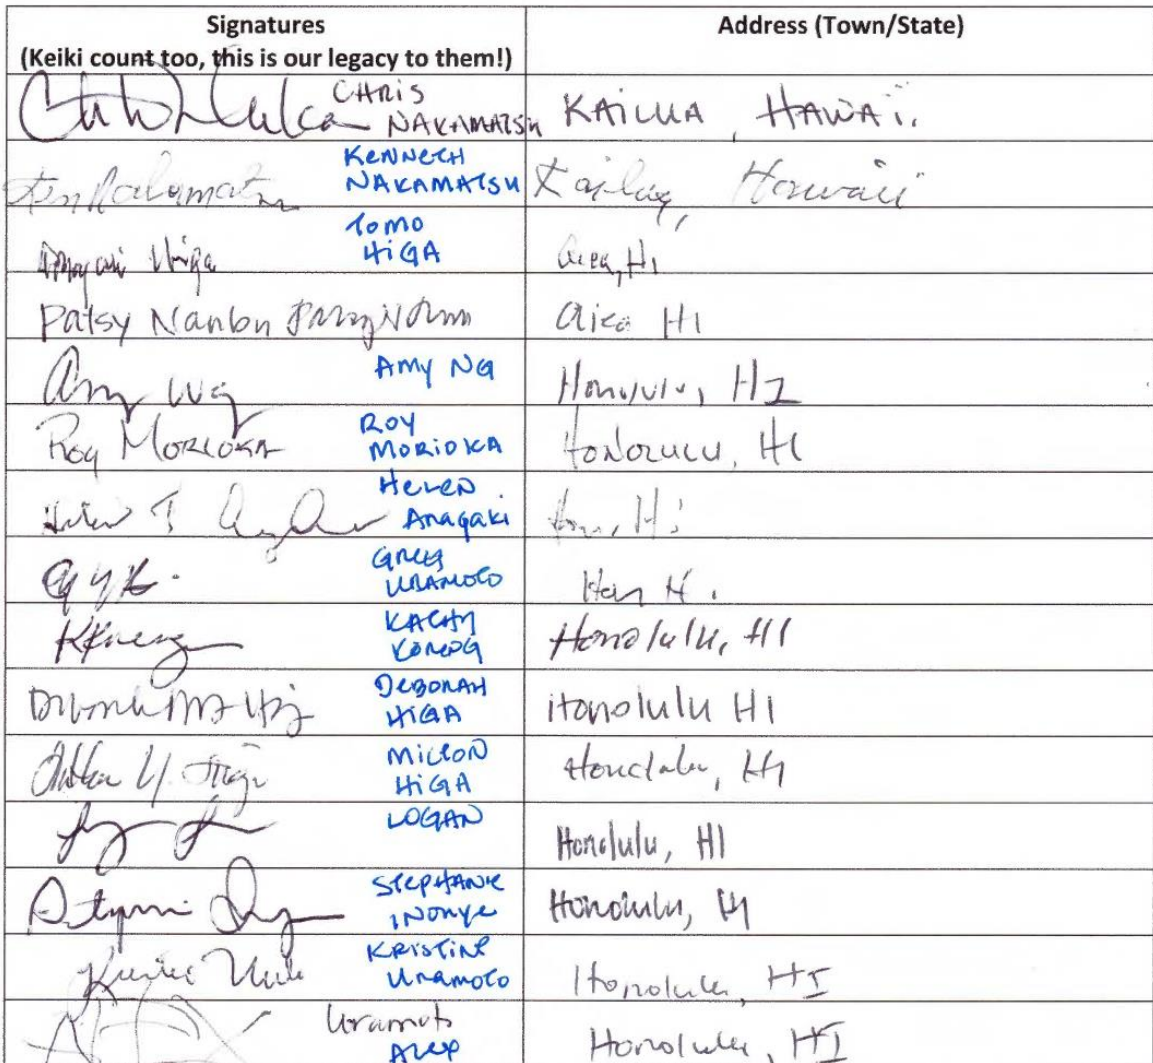 Signatures
(Keiki count too, this is our legacy to them!)
Address (Town/State)
CHRIS
NAKAMATSU
KAILUA, HAWAII
KENNETH
NAKAMATSU
Kailua, Hawaii
TOMO
HIGA
Higa
aiea, HI
Patsy Nanbu
aiea HI
Amy Ng
AMY NG
Honolulu, HI
Roy MORIOKA
ROY
MORIOKA
HONOLULU, HI
HELEN
Anagaki
Hon, HI
GREG
URAMOTO
Hon H.
KATHY
Honolulu, HI
DEBORAH
HIGA
Honolulu HI
MILTON
HIGA
Honolulu, HI
LOGAN
Honolulu, HI
STEPHANIE
INOUYE
Honolulu, HI
KRISTINE
URAMOTO
Honolulu, HI
Uramoto
ALEX
Honolulu, HI